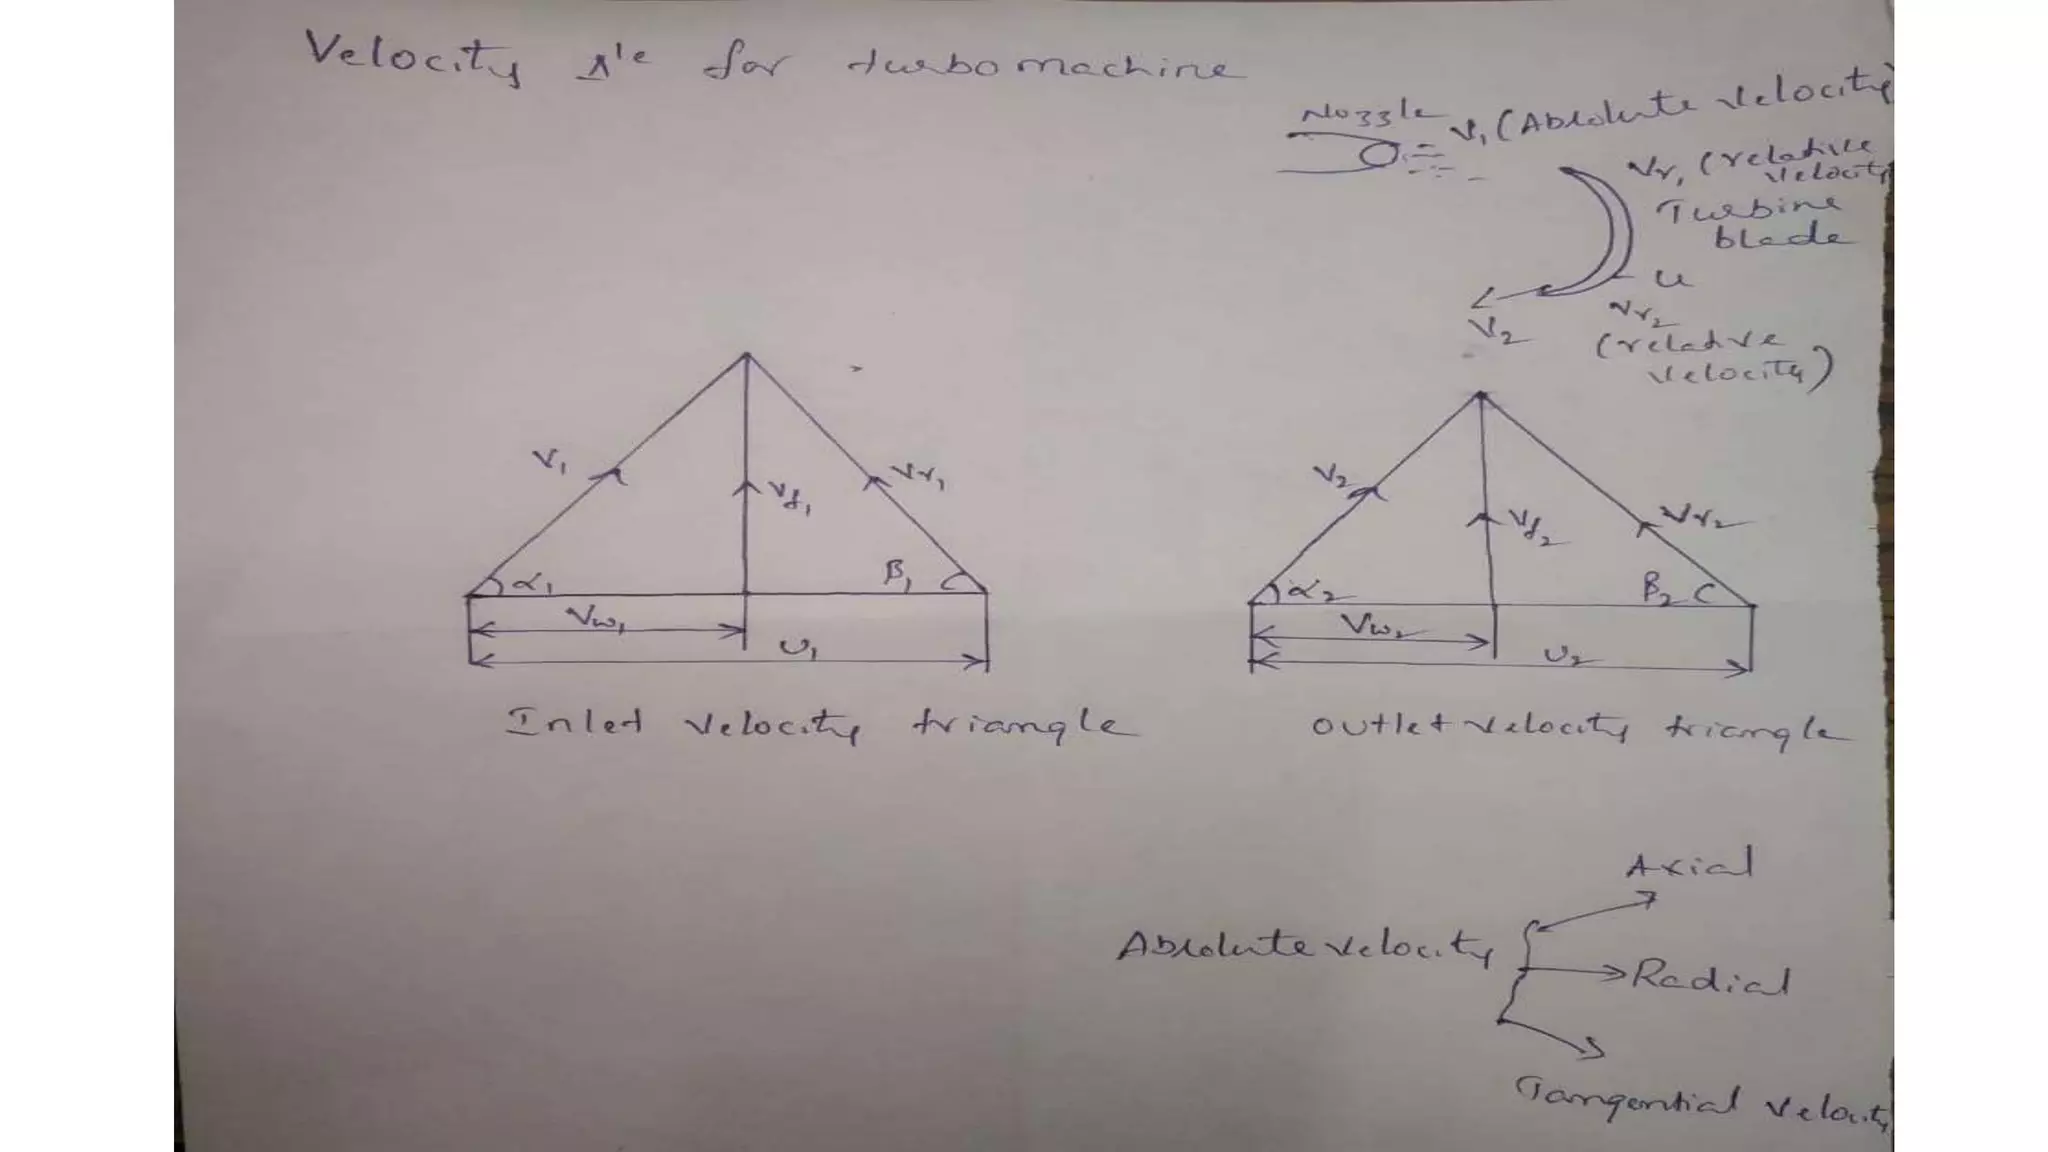 Velocity Δle for turbomachine
Nozzle
V1 (Absolute velocity)
Vr1 (relative
velocity
Turbine
blade
u
V2
Vr2
(relative
velocity)
V1
Vf1
Vr1
α1
β1
Vw1
U1
Inlet velocity triangle
V2
Vf2
Vr2
α2
β2
Vw2
U2
outlet velocity triangle
Axial
Absolute velocity
Radial
Tangential velocity